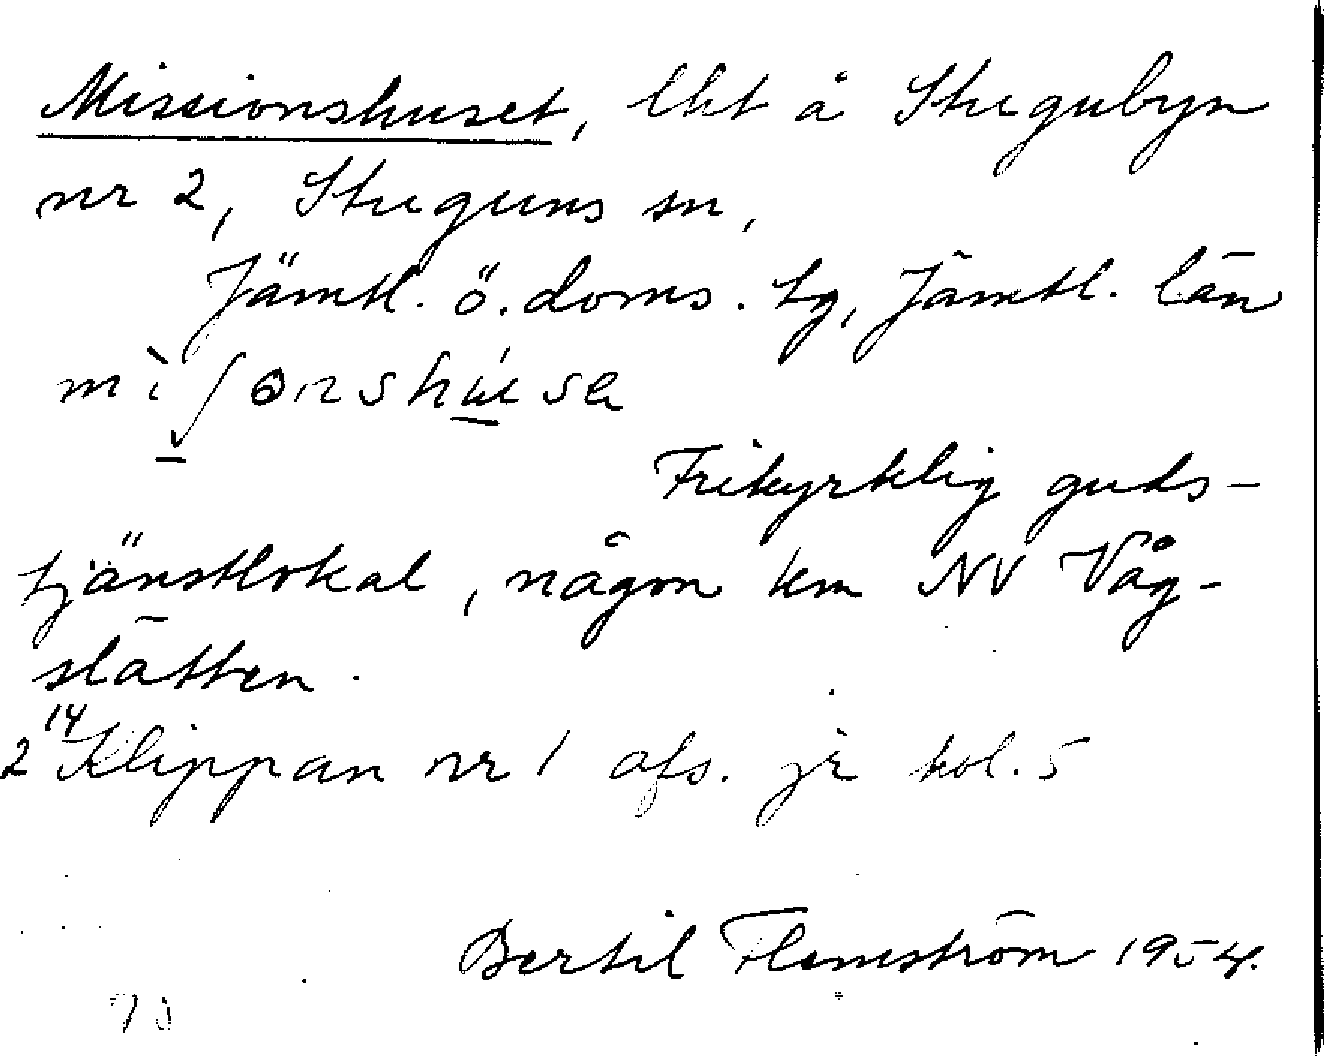 Missionshuset, lht å Stugubyn
nr 2, Stuguns sn,
Jämtl. ö. doms. tg, Jämtl. län
Frikyrklig guds-
tjänstlokal, någon km NV Våg-
slätten.
2 14 Klippan nr 1 afs. jr kol. 5
Bertil Flemström 1954.